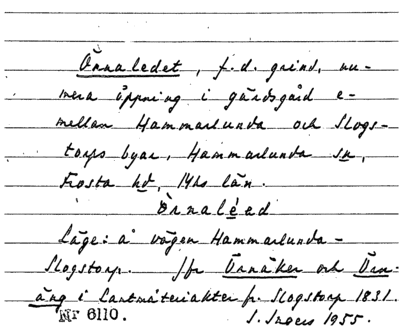 Örnaledet, f.d. grind, nu-
mera öppning i gärdsgård e-
mellan Hammarlunda och Slogs-
torps byar, Hammarlunda sn,
Frosta hd, Mhs län.
Örnaléed
Läge: å vägen Hammarlunda-
Slogstorp. Jfr Örnåker och Örn-
äng i Lantmäteriakter fr. Slogstorp 1831.
Nr 6110.
S. Ingers 1955.